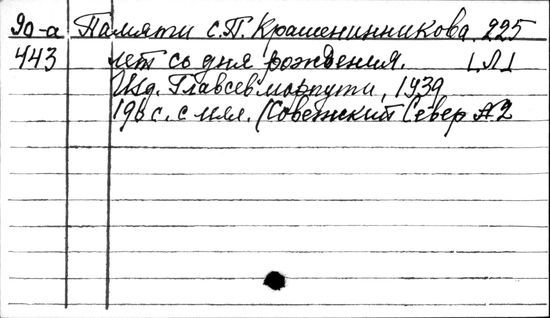 90-а Памяти С.П. Крашенинникова. 225
443 лет со дня рождения. Л.
Изд. Главсевморпути, 1939
с. с илл. (Советский Север №2